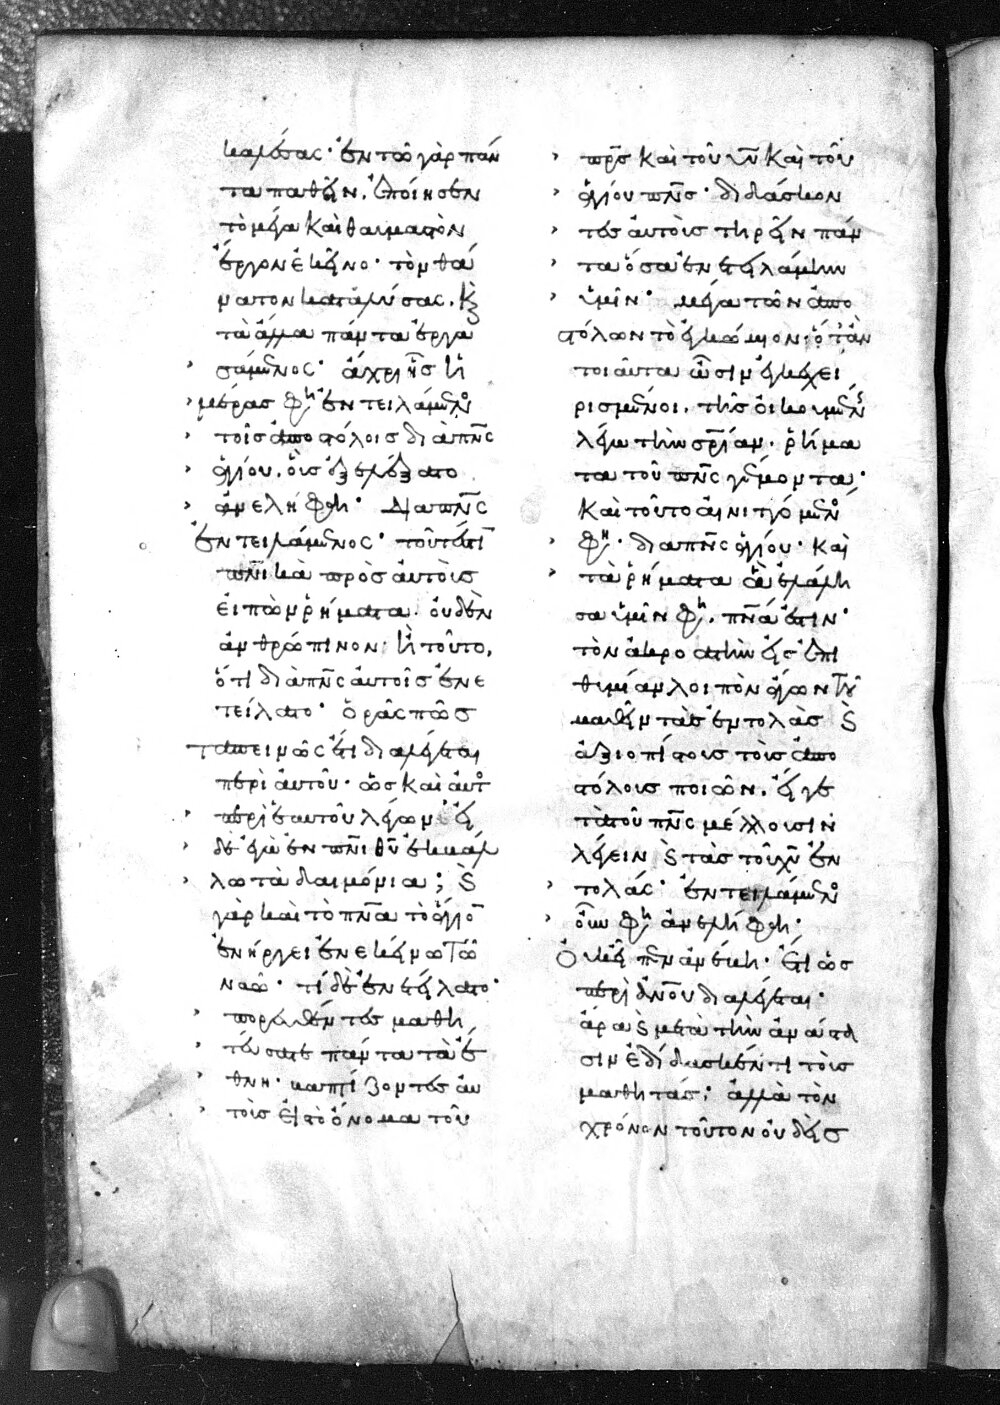 καλέσας· ἐν τῶ γὰρ πάν
τα παθεῖν, ἐποίησεν
τὸ μέγα καὶ θαυμαστὸν
ἔργον ἐκεῖνο· τὸν θά
νατον καταλύσας, κ̣
τὰ ἄλλα πάντα ἐργα
σάμενος· ἄχρι ἧς ἡ
μέρας φη ἐντειλάμενο
τοῖς ἀποστόλοις διὰ πνς
ἁγίου, οὓς ἐξελέξατο
ἀνελήφθη· Δια πνς
ἐντειλάμενος· τουτέστι
πνικὰ πρὸς αὐτοὺς
εἰπὼν ῥήματα· οὐδὲν
ἀνθρώπινον· ἢ τοῦτο,
ὅτι διὰ πνς αὐτοῖς ἐνε
τείλατο· ὁρᾶς πῶς
ταπεινῶς ἔτι διαλέγεται
περὶ αὐτοῦ· ὡς καὶ αὐτο
περὶ ἑαυτοῦ λέγων· εἰ
δὲ ἐγὼ ἐν πνι θυ ἐκβάλ
λω τὰ δαιμόνια; κ
γὰρ καὶ τὸ πνα τὸ ἅγιο
ἐνήργει ἐν ἐκείνω τῶ
ναῶ· τί δὲ ἐντείλατο·
πορευθέντες μαθη
τεύσατε πάντα τὰ ἔ
θνη· βαπτίζοντες αυ
τοὺς εἰς τὸ ὄνομα τοῦ
πρς καὶ τοῦ υυ καὶ τοῦ
ἁγίου πνς· διδάσκον
τες αὐτοὺς τηρεῖν πάν
τα ὅσα ἐνετειλάμην
ὑμῖν· μέγα τῶν ἀπο
στόλων τὸ ἐγκώμιον· ὅταν
τοιαῦτα ὦσιν ἐγκεχει
ρισμένοι, τῆς οἰκουμένης
λέγω τὴν σρίαν· ῥήμα
τα τοῦ πνς γέμοντα·
καὶ τοῦτο αἰνιττόμενο
φη· δια πνς ἁγίου· καὶ
τὰ ῥήματα ἃ ἐλάλη
σα ὑμῖν φη, πνα ἐστιν·
τὸν ἀκροατὴν εἰς ἐπι
θυμίαν λοιπὸν ἄγων τοῦ
μαθεῖν τὰς ἐντολὰς κ
ἀξιοπίστους τοὺς ἀπο
στόλους ποιῶν, εἴ γε
τὰ τοῦ πνς μέλλουσιν
λέγειν κ τὰς τοῦ χυ ἐν
τολάς· ἐντειλάμενο
οὖν φη ἀνελήφθη·
Οὐκ εἶπεν ἀνέβη· ἔτι ὡς
περὶ ἀνου διαλέγεται·
ἄρα κ μετὰ τὴν ἀνάστα
σιν ἐδίδασκέν τι τοὺς
μαθητάς; ἀλλὰ τὸν
χρόνον τοῦτον οὐδεὶς